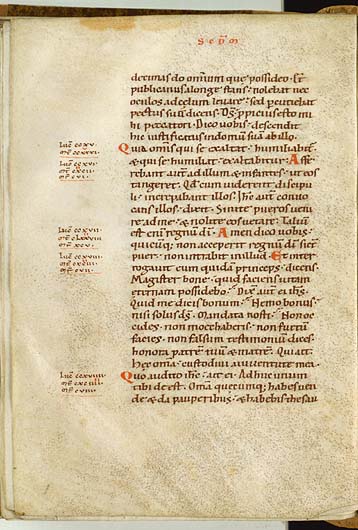 decimas do omnium que possideo. Et
publicanus a longe stans. nolebat nec
oculos ad celum levare. sed percutiebat
pectus suum dicens. Ds ppicius esto mi
hi peccatori. Dico vobis. descendit
hic iustificatus in domum suam ab illo.
Quia omnis qui se exaltat humiliabit.
& qui se humiliat exaltabitur. Affe
rebant aut ad illum & infantes. ut eos
tangeret. Qd cum viderent discipu
li. increpabant illos. Ihc aut convo
cans illos. dixit. Sinite pueros venire
ad me. & nolite eos vetare. Talium
est enim regnum di. Amen dico vobis.
quicuq; non acceperit regnum di sicut
puer. non intrabit in illud. Et inter
rogavit eum quidam princeps. dicens.
Magister bone. quid faciens vitam
eternam possidebo. Dix aut ei ihc.
Quid me dicis bonum? Nemo bonus
nisi solus ds. Mandata nosti. Non oc
cides. non mechaberis. non furtum
facies. non falsum testimonium dices.
honora patre tuum & matre. Qui ait.
Hec oma custodivi a iuventute mea.
Quo audito ihc. ait ei. Adhuc unum
tibi deest. Oma quecumq; habes ven
de & da pauperibus. & habebis thesau